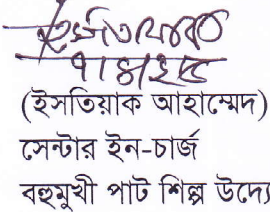 (ইসতিয়াক আহাম্মেদ)
সেন্টার ইন-চার্জ
বহুমুখী পাট শিল্প উদ্যো